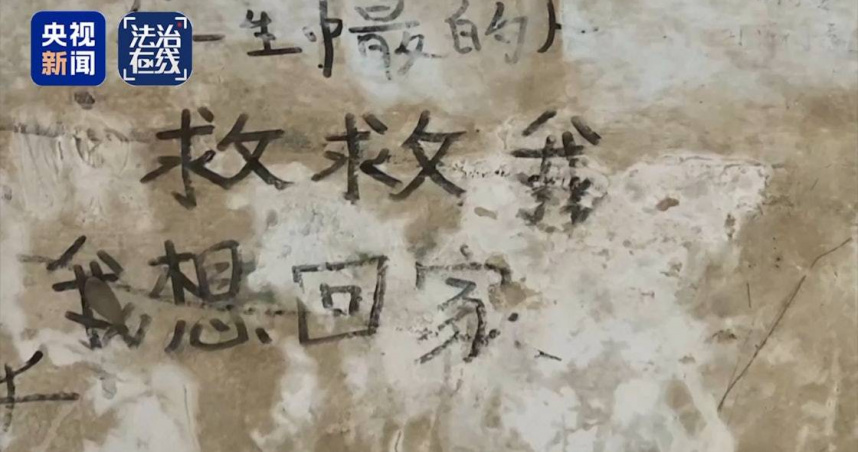 央视新闻
法治在线
一生中最的
救救我
我想回家